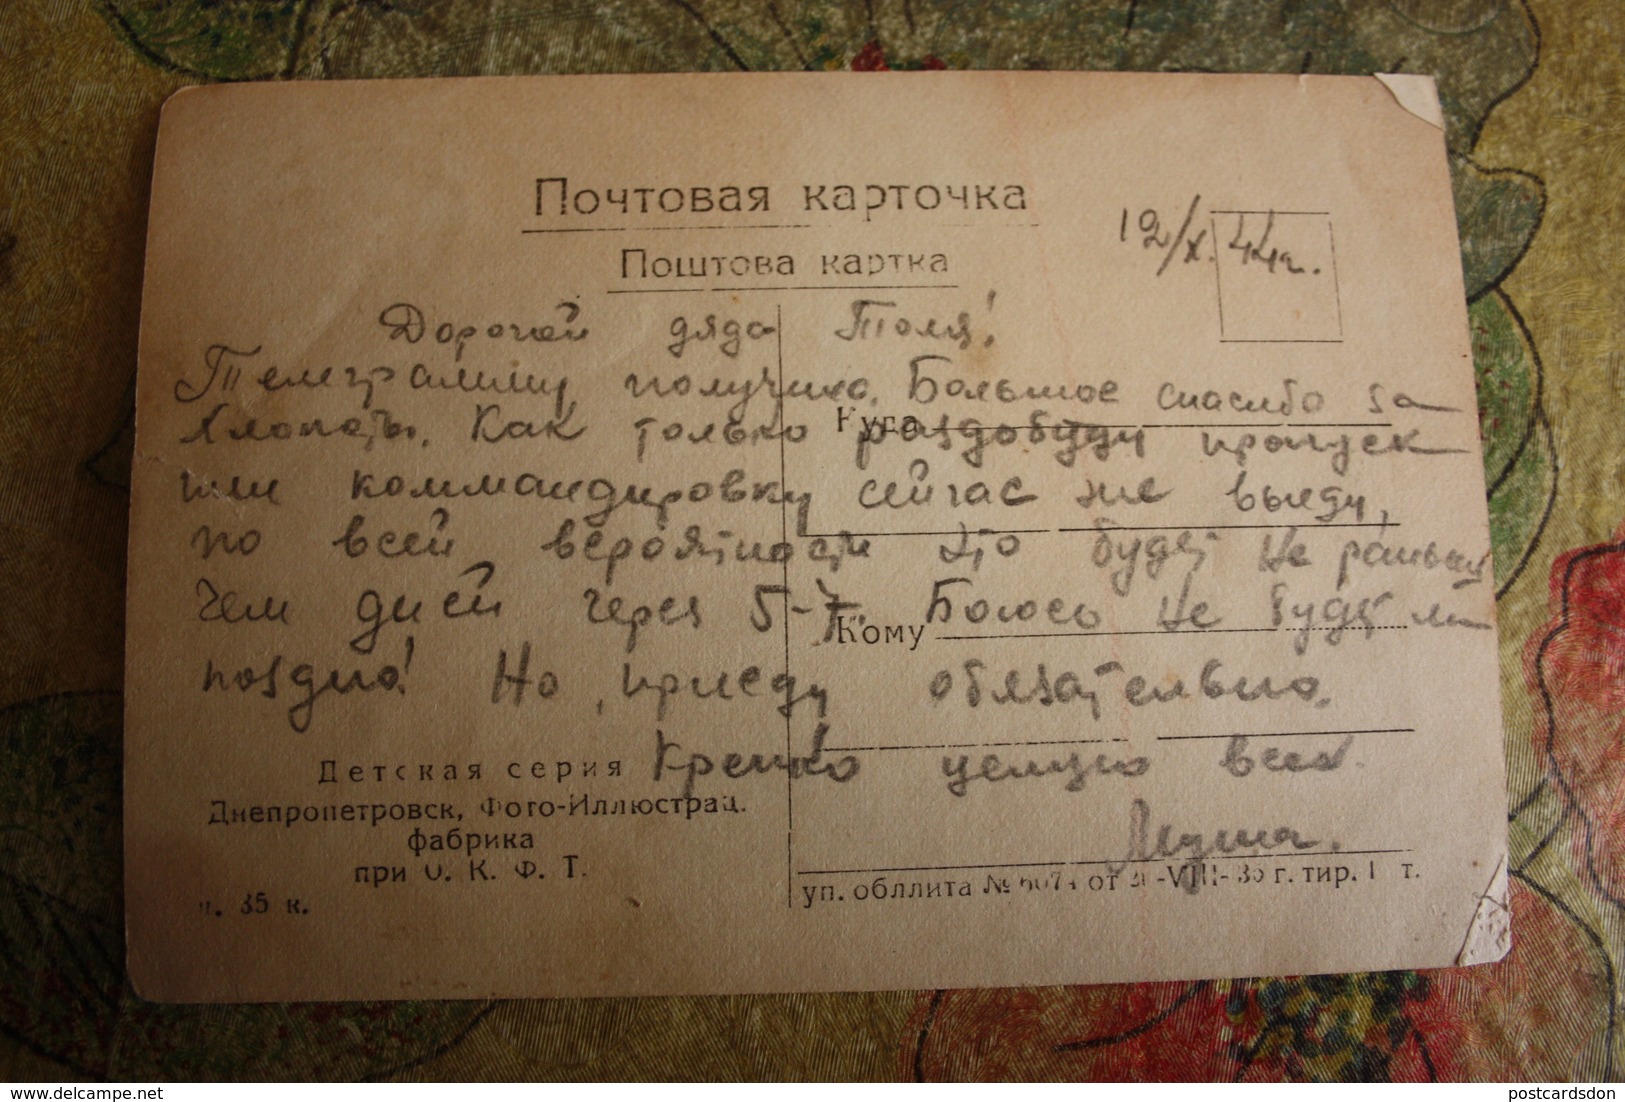 Почтовая карточка
12/X. 44г.
Поштова картка
Дорогой дядя Толя!
Телеграмму получила. Большое спасибо за
хлопоты. Как только раздобуду пропуск
или коммандировку сейчас же выеду,
по всей вероятности это будет не раньше
чем дней через 5-7. Боюсь не будет ли
поздно! Но, приеду обязательно.
Крепко целую всех.
Муша.
Куда
Кому
Детская серия
Днепропетровск, Фото-Иллюстрац.
фабрика
при О. К. Ф. Т.
ц. 35 к.
уп. обллита № от -VIII- г. тир. т.
delcampe.net
postcardsdon